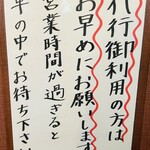 代行御利用の方は
お早めにお願いします
営業時間が過ぎると
車の中でお待ち下さい